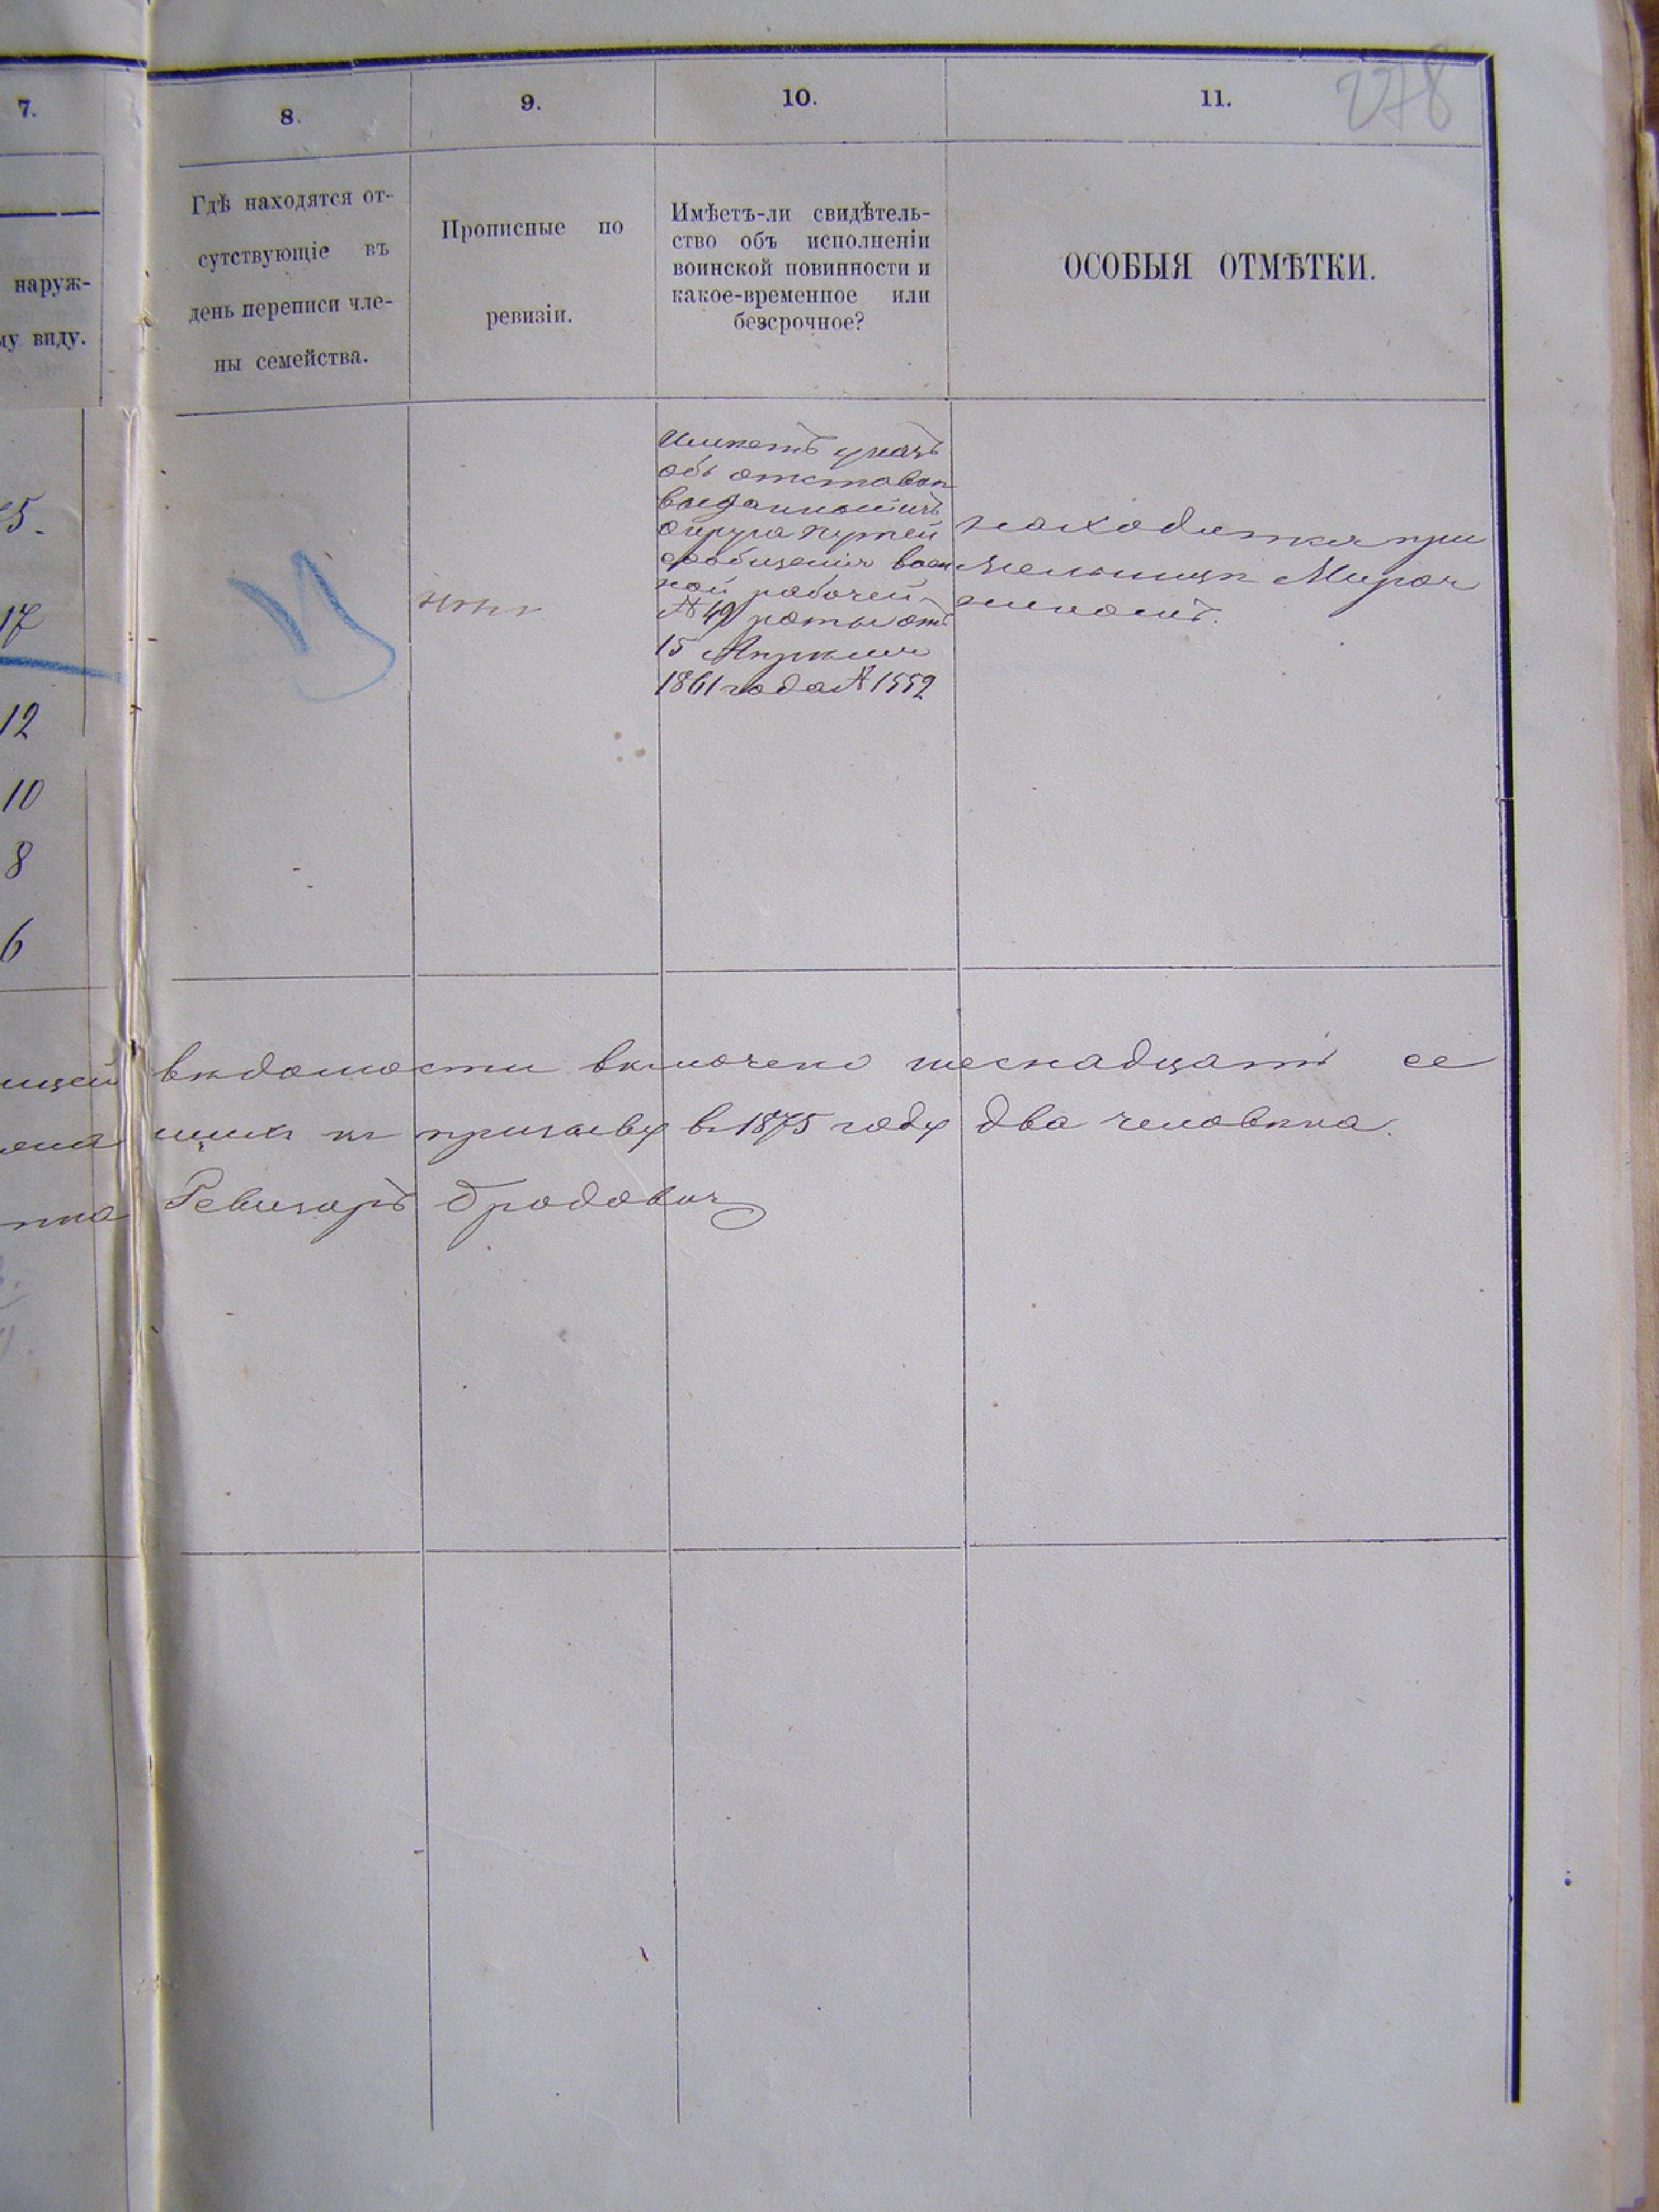 278
7.
8.
9.
10.
11.
наруж-
му виду.
Гдѣ находятся от-
сутствующіе въ
день переписи чле-
ны семейства.
Прописные по
ревизіи.
Имѣетъ-ли свидѣтель-
ство объ исполненіи
воинской повинности и
какое-временное или
безсрочное?
ОСОБЫЯ ОТМѢТКИ.
5.
17
12
10
8
6
нѣтъ
Имѣетъ указъ
объ отставкѣ
выданный изъ
округа путей
сообщенія воен
ной рабочей
№ 49 роты отъ
15 Апрѣля
1861 года № 1552
находится при
мельницѣ
вѣдомости включено шеснадцать се
къ призыву въ 1875 году два человѣка.
Ревизоръ Бродович